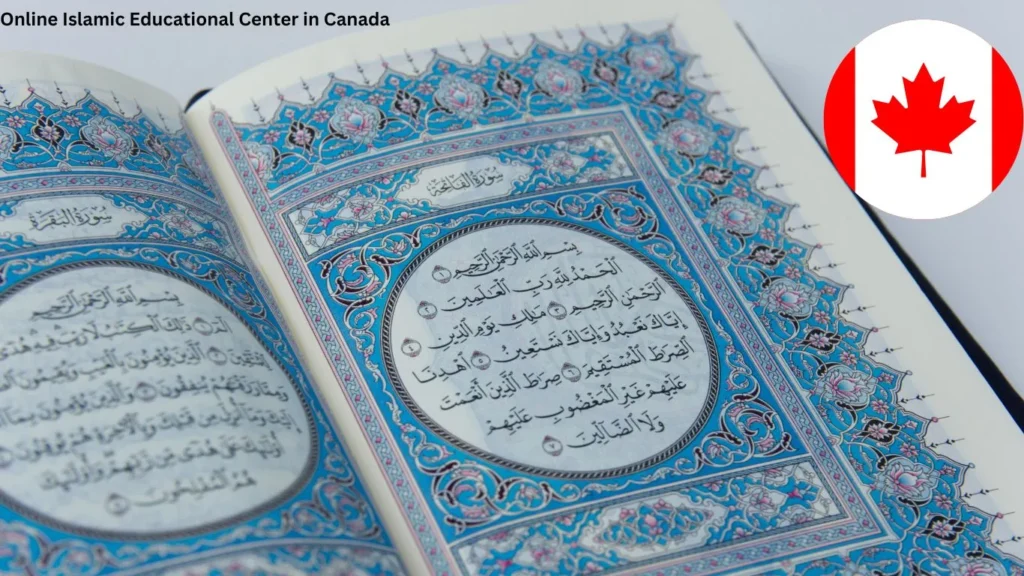 Online Islamic Educational Center in Canada
سُورَةُ الفَاتِحَةِ
بِسْمِ ٱللَّهِ ٱلرَّحْمَٰنِ ٱلرَّحِيمِ ١
ٱلْحَمْدُ لِلَّهِ رَبِّ ٱلْعَٰلَمِينَ ٢
ٱلرَّحْمَٰنِ ٱلرَّحِيمِ ٣ مَٰلِكِ يَوْمِ ٱلدِّينِ ٤
إِيَّاكَ نَعْبُدُ وَإِيَّاكَ نَسْتَعِينُ ٥ ٱهْدِنَا
ٱلصِّرَٰطَ ٱلْمُسْتَقِيمَ ٦ صِرَٰطَ ٱلَّذِينَ أَنْعَمْتَ
عَلَيْهِمْ غَيْرِ ٱلْمَغْضُوبِ عَلَيْهِمْ
وَلَا ٱلضَّآلِّينَ ٧
سُورَةُ البَقَرَةِ
بِسْمِ ٱللَّهِ ٱلرَّحْمَٰنِ ٱلرَّحِيمِ
الٓمٓ ١ ذَٰلِكَ ٱلْكِتَٰبُ لَا رَيْبَ فِيهِ هُدًى
لِّلْمُتَّقِينَ ٢ ٱلَّذِينَ يُؤْمِنُونَ بِٱلْغَيْبِ وَيُقِيمُونَ
وَمِمَّا رَزَقْنَٰهُمْ يُنفِقُونَ ٣ وَٱلَّذِينَ يُؤْمِنُونَ بِمَآ
إِلَيْكَ وَمَآ أُنزِلَ مِن قَبْلِكَ وَبِٱلْءَاخِرَةِ هُمْ يُوقِنُونَ
أُو۟لَٰٓئِكَ عَلَىٰ هُدًى مِّن رَّبِّهِمْ وَأُو۟لَٰٓئِكَ
هُمُ ٱلْمُفْلِحُونَ ٥